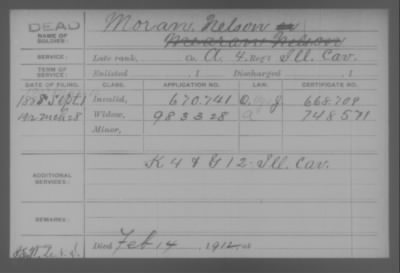 DEAD
NAME OF SOLDIER: Moran, Nelson
Nelson
SERVICE: Late rank, Co. A, 4 Reg't Ill. Cav.
TERM OF SERVICE: Enlisted , 1 Discharged , 1
DATE OF FILING. CLASS. APPLICATION NO. LAW. CERTIFICATE NO.
1888 Sept. Invalid, 670.741 668.709
Widow, 983328 748571
Minor,
ADDITIONAL SERVICES: K 4 & G 12 Ill. Cav.
REMARKS:
Died Feb 14 1912, at